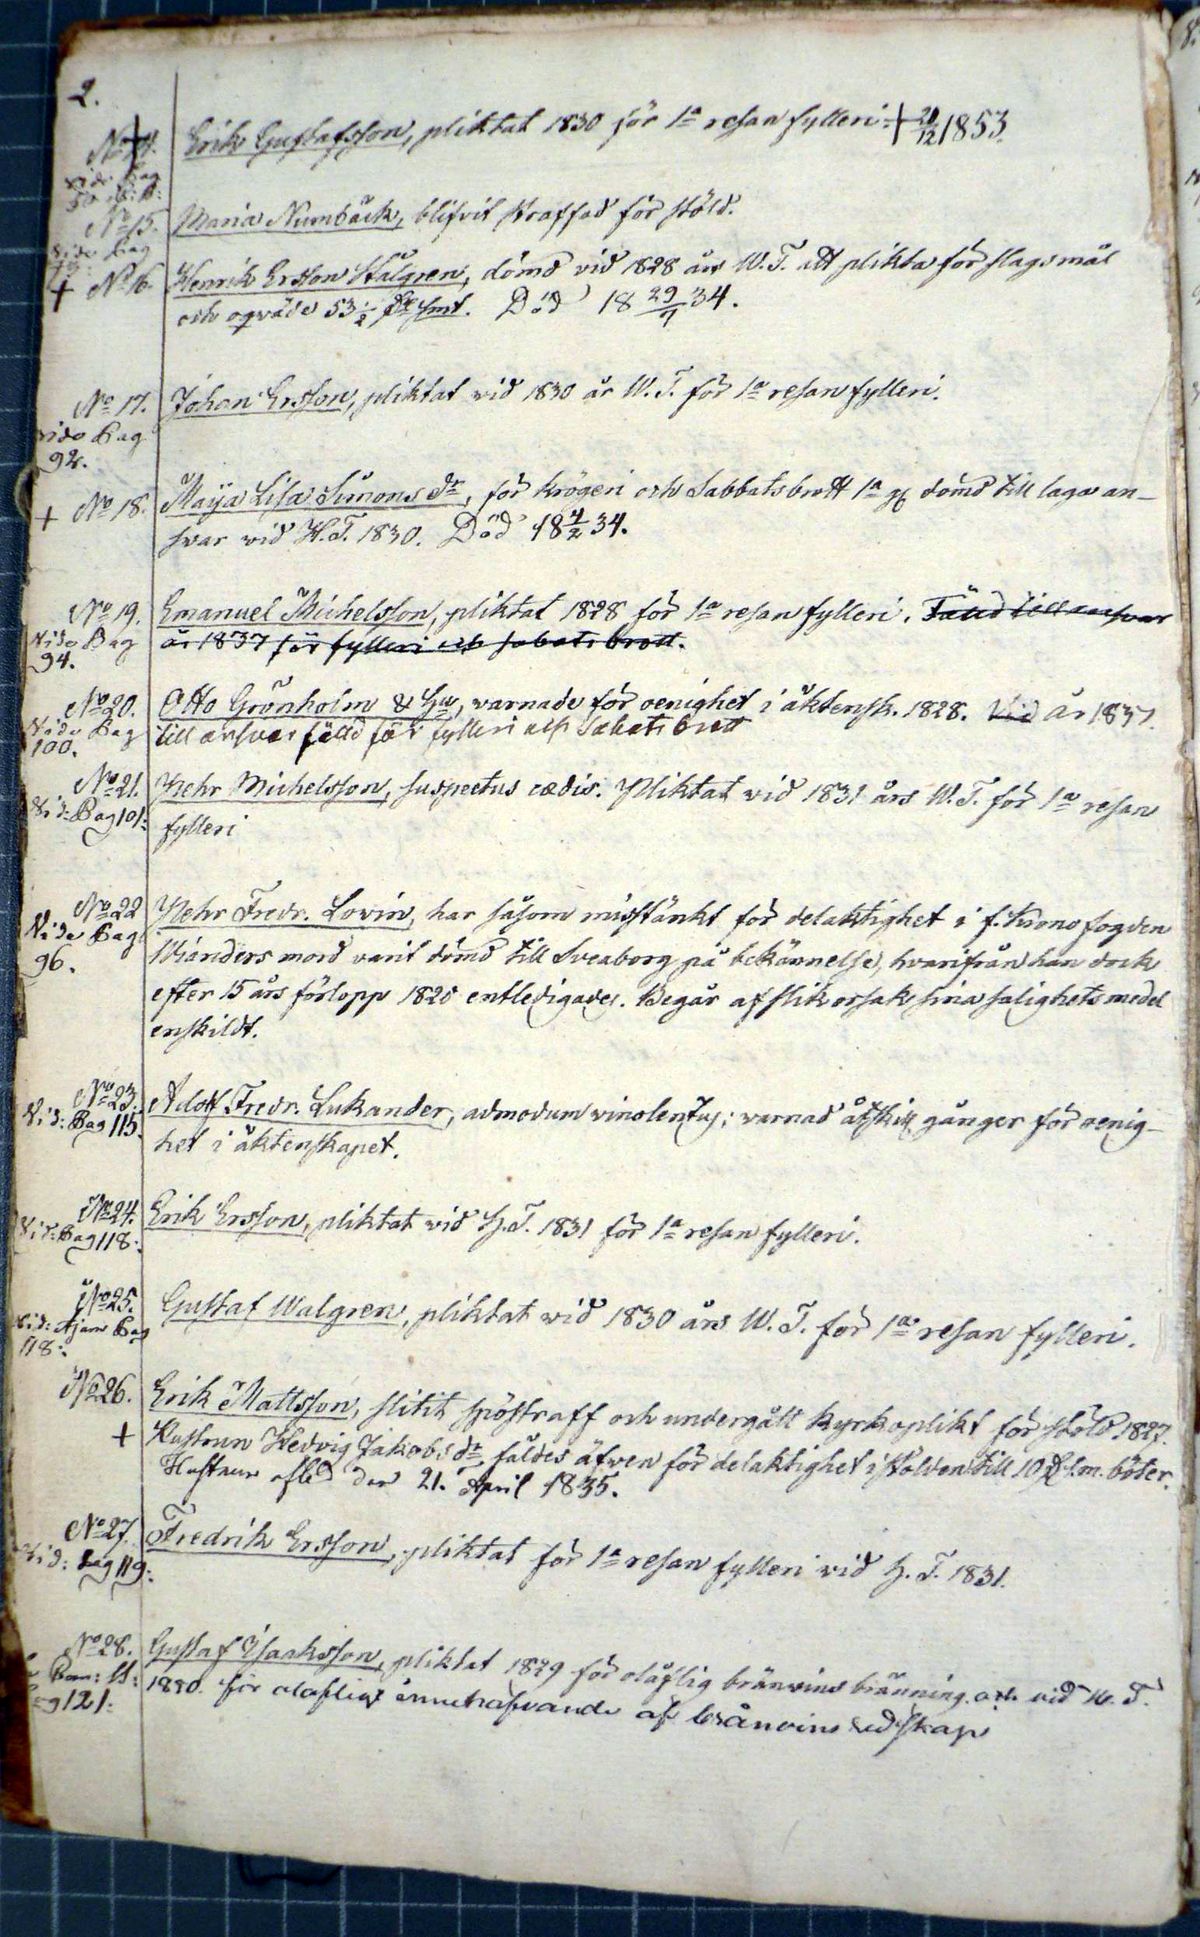 2.
No 14. Erik Gustafsson, pliktat 1830 för 1a resan fylleri. + 20/12 1853.
vide Pag
No 15. Maria Numbäck, blifvit straffad för stöld.
vide Pag
+ No 16. Henrik Ersson Stålgren, dömd vid 1828 års W. T. att plikta för slagsmål
och oqväde 53 1/2 Smt. Död 18 29/7 34.
No 17. Johan Ersson, pliktat vid 1830 år W. T. för 1a resan fylleri.
vide Pag
92.
+ No 18. Maija Lisa Simons dr, för krögeri och Sabbatsbrott 1a g dömd till laga an-
svar vid H. T. 1830. Död 18 4/2 34.
No 19. Emanuel Michelsson, pliktat 1828 för 1a resan fylleri. Fäld till ansvar
Vide Pag år 1837 för fylleri och sabatsbrott.
94.
No 20. Otto Grönholm & Hu, varnade för oenighet i äktensk. 1828. Vid år 1837
Vide Pag till ansvar fälld för fylleri och Sabatsbrott
100.
No 21. Pehr Michelsson, suspectus cædis. Pliktat vid 1831 års W. T. för 1a resan
Vid: Pag 101: fylleri
No 22 Pehr Fredr. Lovin, har såsom misstänkt för delaktighet i f. Kronofogden
Vide Pag Wianders mord varit dömd till Sveaborg på bekännelse, hvarifrån han dock
96. efter 15 års förlopp 1820 entledigades. Begår af slik orsak sina salighetsmedel
enskildt.
No 23. Adolf Fredr. Lukander, admodum vinolentus; varnad åtskill. gånger för oenig-
Vid: Pag 115. het i äktenskapet.
No 24. Erik Ersson, pliktat vid H. T. 1831 för 1a resan fylleri.
Vid: Pag 118:
No 25. Gustaf Walgren, pliktat vid 1830 års W. T. för 1a resan fylleri.
Vid: Pag
118:
No 26. Erik Mattsson, slitit spöstraff och undergått kyrkoplikt för stöld 1827.
+ Hustrun Hedvig Jakobs dr fäldes äfven för delaktighet i stölden till 10 S.m. böter.
Hustrun afled den 21. April 1835.
No 27. Fredrik Ersson, pliktat för 1a resan fylleri vid H. T. 1831.
Vid: Pag 119:
No 28. Gustaf Isaksson, pliktat 1829 för olaflig bränvins bränning. och vid W. T.
1830. för olaflig innehafvande af bränvins redskap
121: